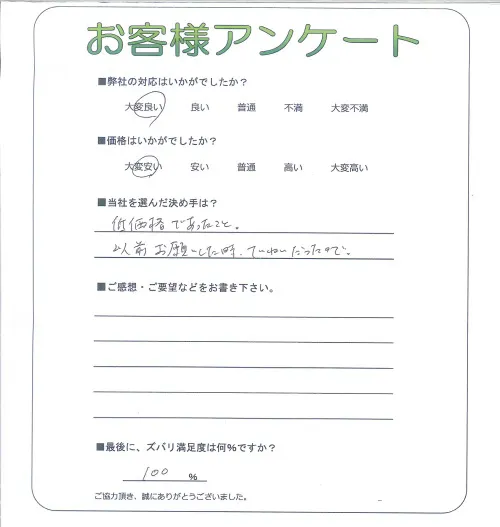 お客様アンケート
■弊社の対応はいかがでしたか？
大変良い 良い 普通 不満 大変不満
■価格はいかがでしたか？
大変安い 安い 普通 高い 大変高い
■当社を選んだ決め手は？
低価格であったこと。
以前お願いした時、ていねいだったので。
■ご感想・ご要望などをお書き下さい。
■最後に、ズバリ満足度は何％ですか？
100 %
ご協力頂き、誠にありがとうございました。